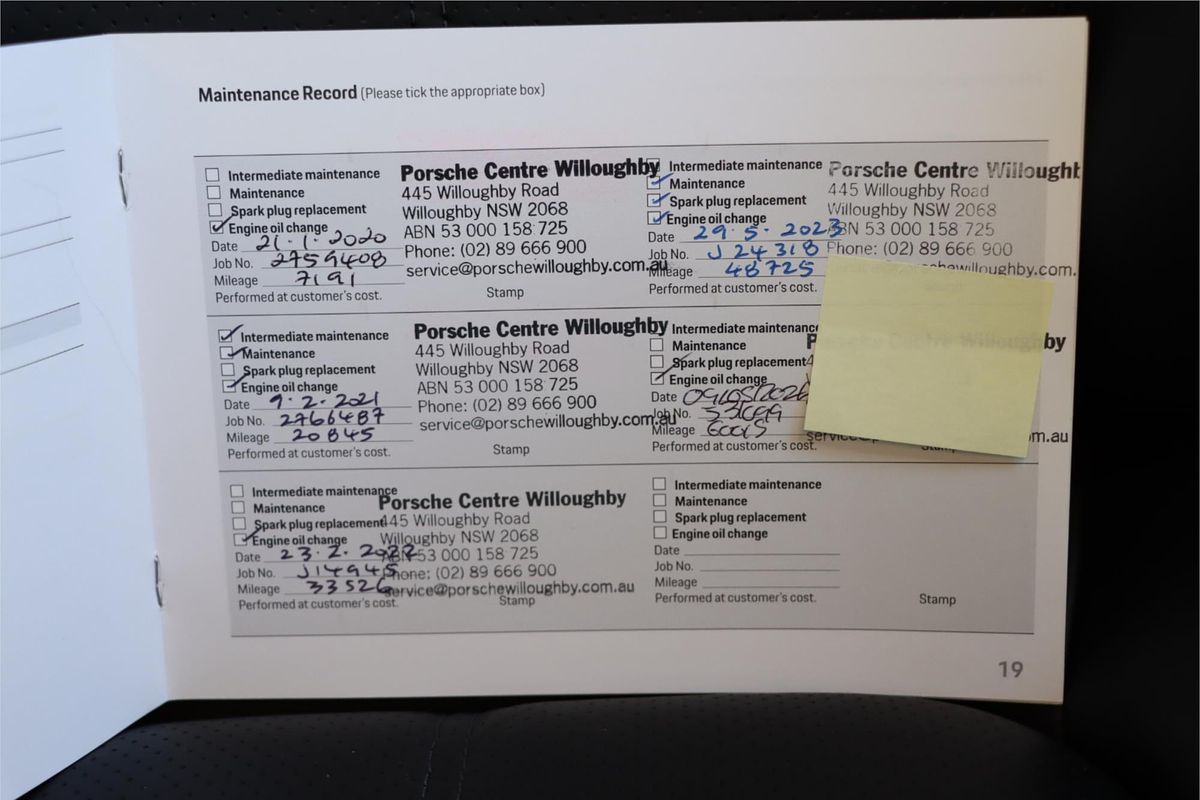 Maintenance Record (Please tick the appropriate box)
Intermediate maintenance
Maintenance
Spark plug replacement
Engine oil change
Date 21.1.2020
Job No. 2759408
Mileage 7191
Performed at customer's cost.
Porsche Centre Willoughby
445 Willoughby Road
Willoughby NSW 2068
ABN 53 000 158 725
Phone: (02) 89 666 900
service@porschewilloughby.com.au
Stamp
Intermediate maintenance
Maintenance
Spark plug replacement
Engine oil change
Date 29.5.2023
Job No. J24318
Mileage 48725
Performed at customer's cost.
Porsche Centre Willought
445 Willoughby Road
Willoughby NSW 2068
ABN 53 000 158 725
Phone: (02) 89 666 900
schewilloughby.com.
Intermediate maintenance
Maintenance
Spark plug replacement
Engine oil change
Date 9.2.2021
Job No. 2766487
Mileage 20845
Performed at customer's cost.
Porsche Centre Willoughby
445 Willoughby Road
Willoughby NSW 2068
ABN 53 000 158 725
Phone: (02) 89 666 900
service@porschewilloughby.com.au
Stamp
Intermediate maintenance
Maintenance
Spark plug replacement
Engine oil change
Date
Job No.
Mileage
Performed at customer's cost.
Porsche Centre Willoughby
service@
m.au
Intermediate maintenance
Maintenance
Spark plug replacement
Engine oil change
Date 23.2.2022
Job No. J14945
Mileage 33526
Performed at customer's cost.
Porsche Centre Willoughby
445 Willoughby Road
Willoughby NSW 2068
ABN 53 000 158 725
Phone: (02) 89 666 900
service@porschewilloughby.com.au
Stamp
Intermediate maintenance
Maintenance
Spark plug replacement
Engine oil change
Date
Job No.
Mileage
Performed at customer's cost.
Stamp
19